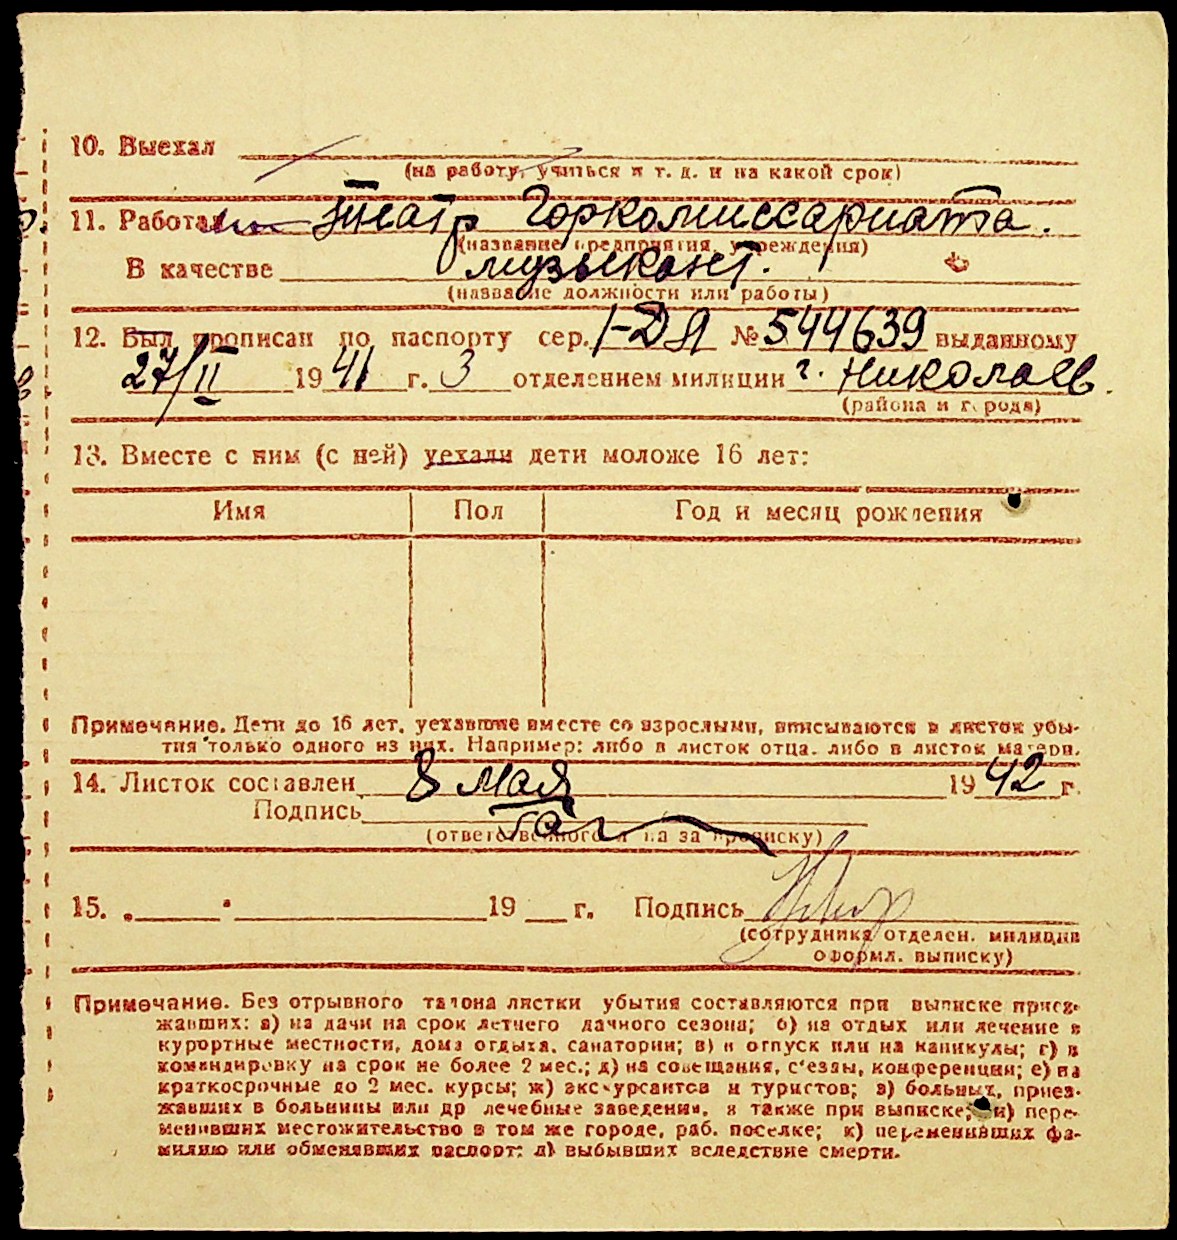 10. Выехал
(на работу, учиться и т. д. и на какой срок)
11. Работал театр Горкомиссариата.
(название предприятия, учреждения)
В качестве музыкант.
(название должности или работы)
12. Был прописан по паспорту сер. I-ДЯ № 544639 выданному
27/II 1941 г. 3 отделением милиции г. Николаев.
(района и города)
13. Вместе с ним (с ней) уехали дети моложе 16 лет:
Имя Пол Год и месяц рождения
Примечание. Дети до 16 лет, уехавшие вместе со взрослыми, вписываются в листок убы-
тия только одного из них. Например: либо в листок отца, либо в листок матери.
14. Листок составлен 8 мая 1942 г.
Подпись
(ответственного лица за прописку)
15. 19 г. Подпись
(сотрудника отделен. милиции
оформл. выписку)
Примечание. Без отрывного талона листки убытия составляются при выписке приез-
жавших: а) на дачи на срок летнего дачного сезона; б) на отдых или лечение в
курортные местности, дома отдыха, санатории; в) в отпуск или на каникулы; г) в
командировку на срок не более 2 мес.; д) на совещания, с'езды, конференции; е) на
краткосрочные до 2 мес. курсы; ж) экскурсантов и туристов; з) больных, приез-
жавших в больницы или др лечебные заведения, а также при выписке; и) пере-
менивших местожительство в том же городе, раб. поселке; к) переменивших фа-
милию или обменявших паспорт; л) выбывших вследствие смерти.